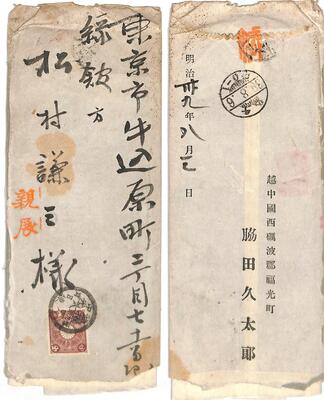 東京市牛込原町三丁目七十番地
方
松村謙三様
親展
明治卅九年八月三日
越中國西礪波郡福光町
脇田久太郎